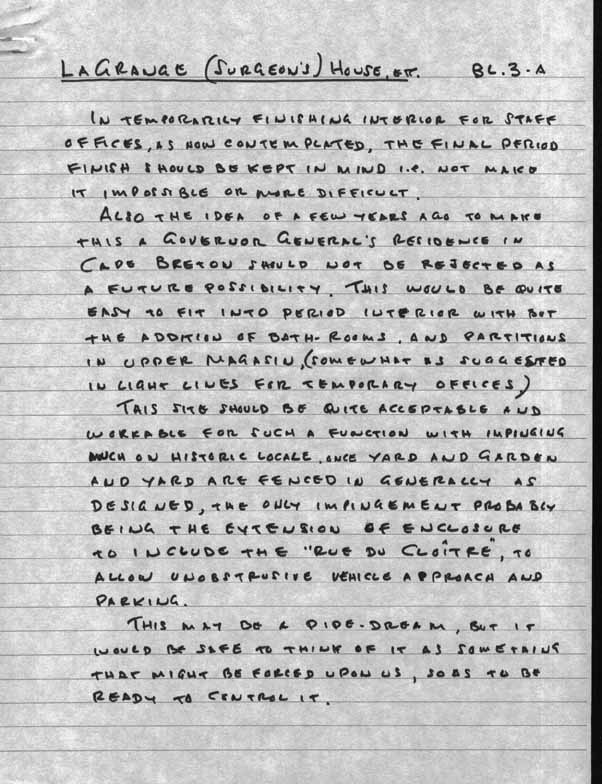 LAGRANGE (SURGEON'S) HOUSE, ETC. BL.3-A
IN TEMPORARILY FINISHING INTERIOR FOR STAFF
OFFICES, AS NOW CONTEMPLATED, THE FINAL PERIOD
FINISH SHOULD BE KEPT IN MIND I.E. NOT MAKE
IT IMPOSSIBLE OR MORE DIFFICULT.
ALSO THE IDEA OF A FEW YEARS AGO TO MAKE
THIS A GOVERNOR GENERAL'S RESIDENCE IN
CAPE BRETON SHOULD NOT BE REJECTED AS
A FUTURE POSSIBILITY. THIS WOULD BE QUITE
EASY TO FIT INTO PERIOD INTERIOR WITH BUT
THE ADDITION OF BATH-ROOMS, AND PARTITIONS
IN UPPER MAGASIN, (SOMEWHAT AS SUGGESTED
IN LIGHT LINES FOR TEMPORARY OFFICES)
THIS SITE SHOULD BE QUITE ACCEPTABLE AND
WORKABLE FOR SUCH A FUNCTION WITH IMPINGING
MUCH ON HISTORIC LOCALE, ONCE YARD AND GARDEN
AND YARD ARE FENCED IN GENERALLY AS
DESIGNED, THE ONLY IMPINGEMENT PROBABLY
BEING THE EXTENSION OF ENCLOSURE
TO INCLUDE THE "RUE DU CLOÎTRE", TO
ALLOW UNOBSTRUSIVE VEHICLE APPROACH AND
PARKING.
THIS MAY BE A PIPE-DREAM, BUT IT
WOULD BE SAFE TO THINK OF IT AS SOMETHING
THAT MIGHT BE FORCED UPON US, SO AS TO BE
READY TO CONTROL IT.